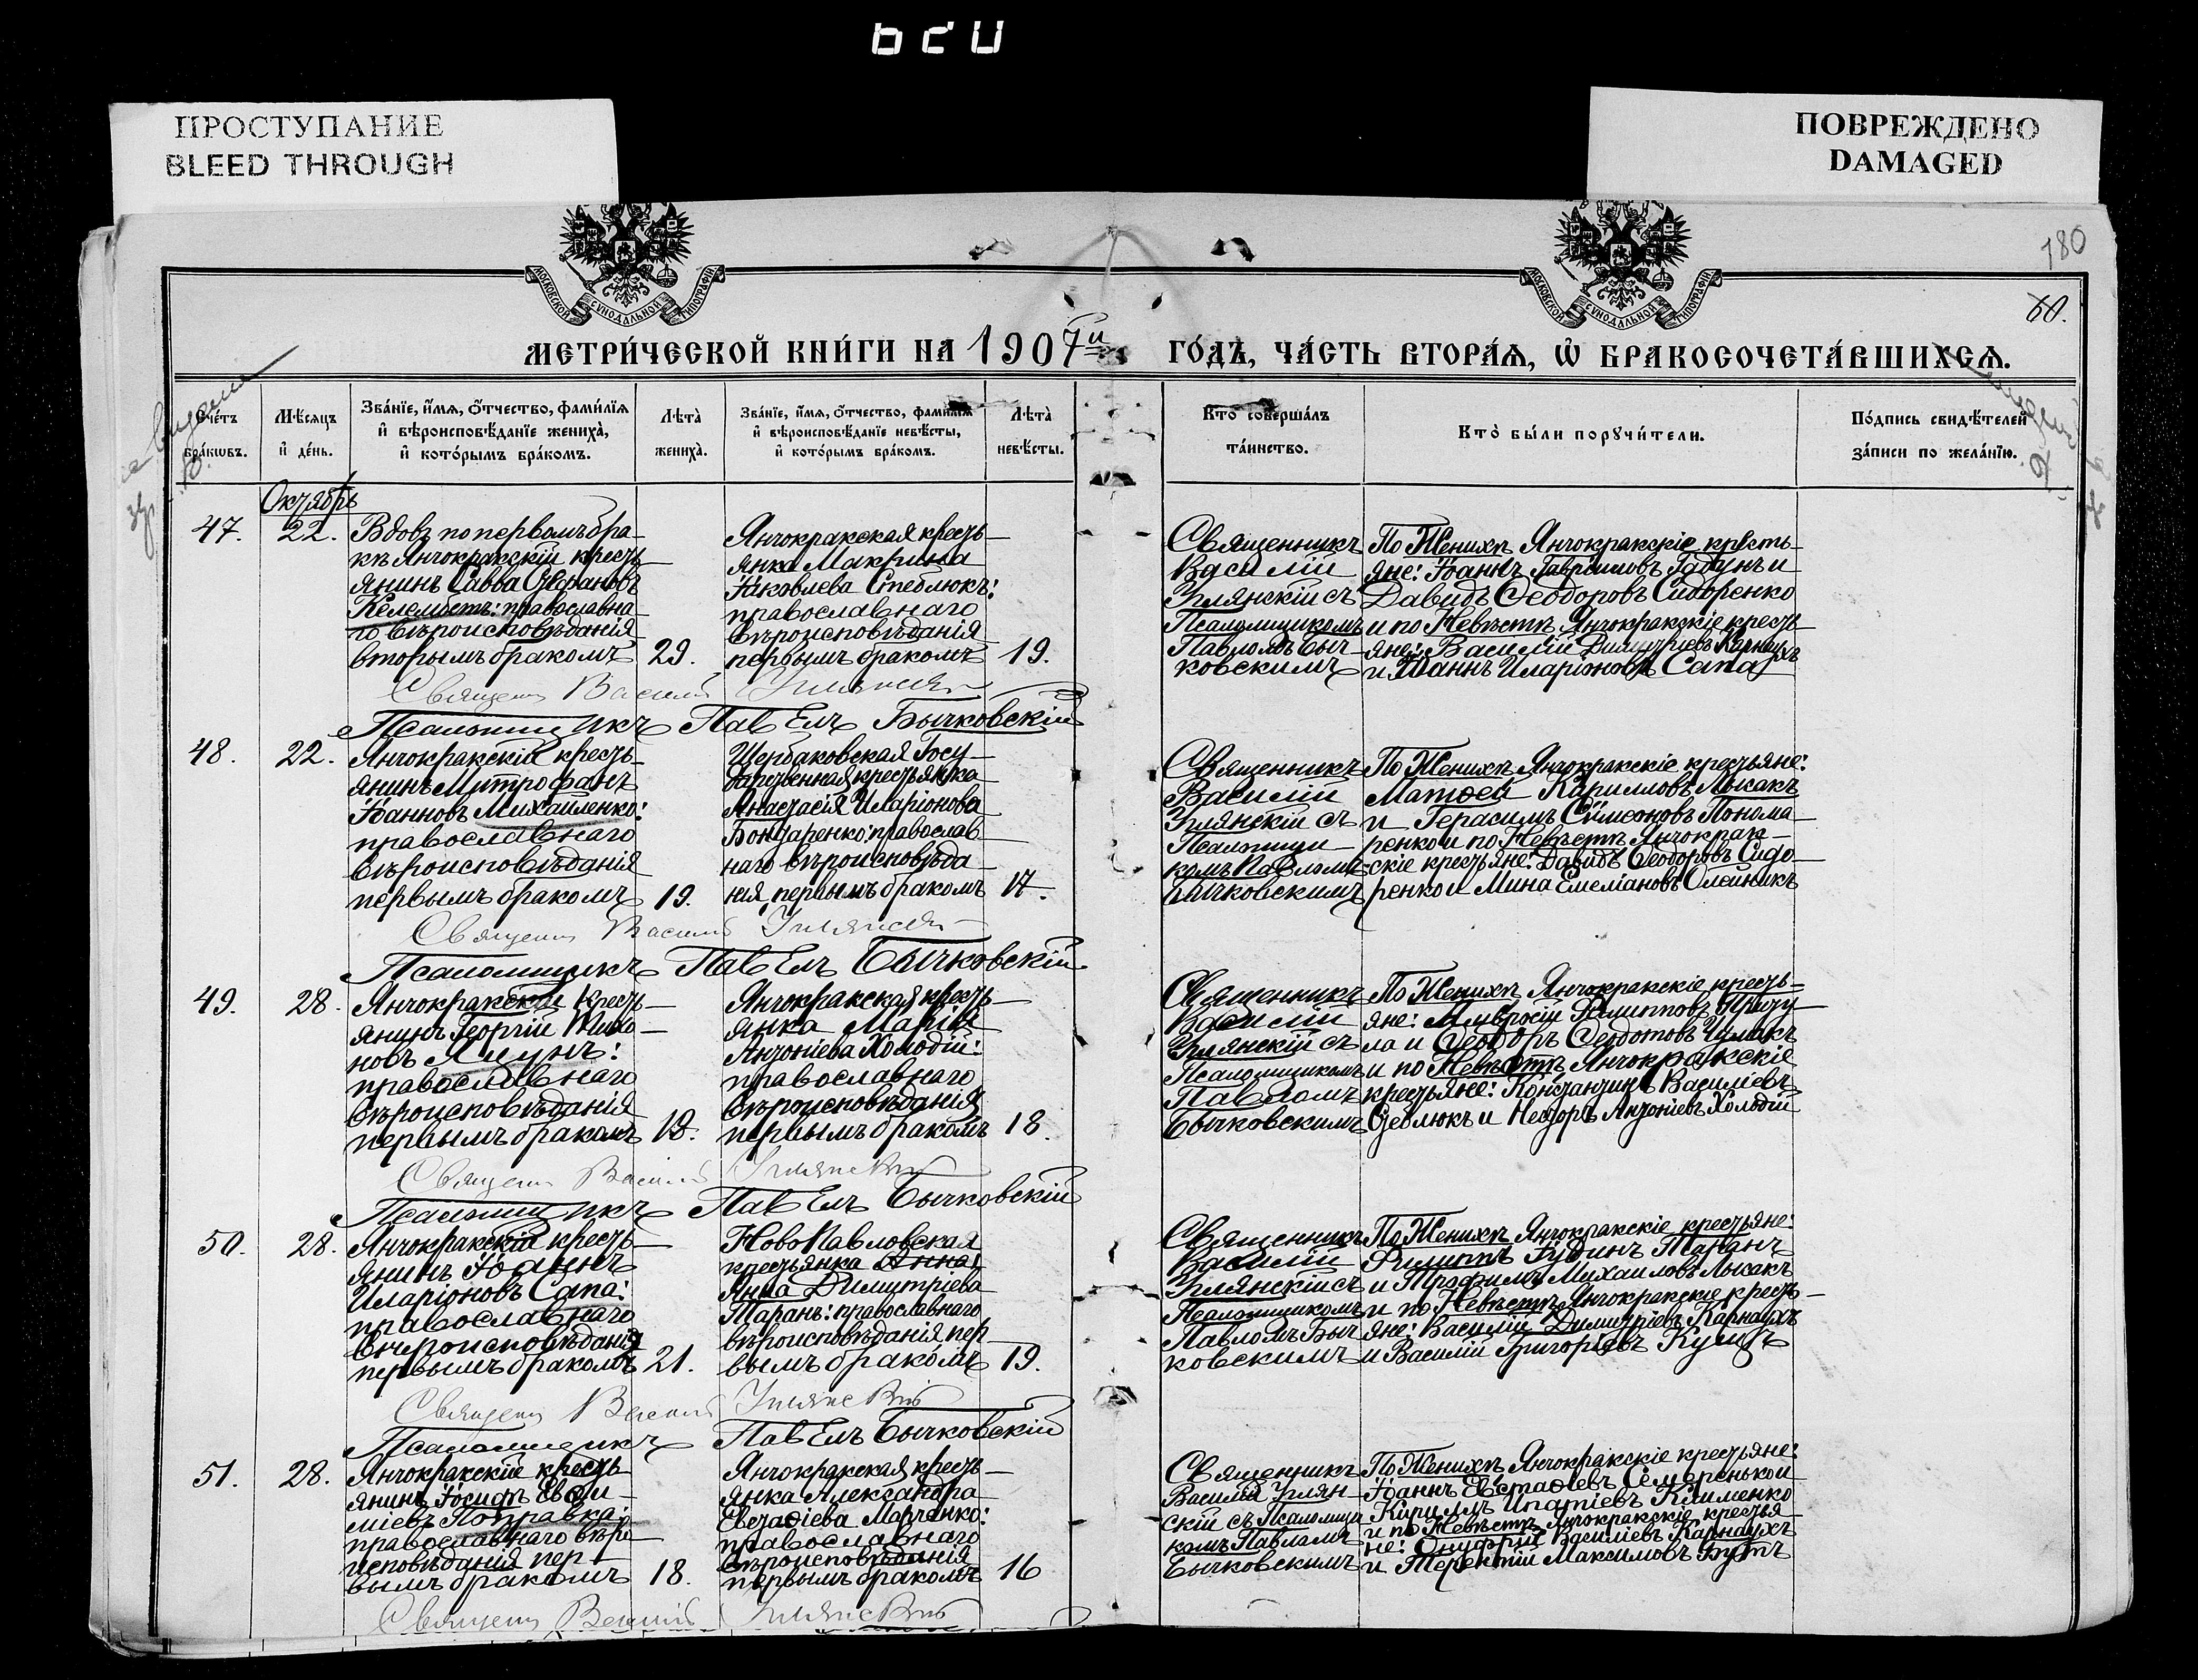 ПРОСТУПАНИЕ
BLEED THROUGH
ПОВРЕЖДЕНО
DAMAGED
МОСКОВСКОЙ СѴНОДАЛЬНОЙ ТИПОГРАФІИ
МОСКОВСКОЙ СѴНОДАЛЬНОЙ ТИПОГРАФІИ
180
60.
МЕТРИ́ЧЕСКОЙ КНИ́ГИ НА 1907й ГО́ДЪ, ЧА́СТЬ ВТОРА́Ѧ, Ѡ҆ БРАКОСОЧЕТА́ВШИХСѦ.
Сче́тъ бра́кѡвъ.
Мѣ́сяцъ и҆ де́нь.
Зва́нїе, и҆́мѧ, ѻ҆́тчество, фами́лїѧ и҆ вѣроисповѣ́данїе жениха̀, и҆ кото́рымъ бра́комъ.
Лѣ́та̀ жениха̀.
Зва́нїе, и҆́мѧ, ѻ҆́тчество, фами́лїѧ и҆ вѣроисповѣ́данїе невѣ́сты, и҆ кото́рымъ бра́комъ.
Лѣ́та̀ невѣ́сты.
Кто̀ соверша́лъ та́инство.
Кто̀ бы́ли порꙋчи́тели.
По́дпись свидѣ́телей за́писи по жела́нїю.
Октябрь
47.
22.
Вдовъ по первомъ бра-
кѣ Янчокракскій кресть-
янинъ Савва Стефановъ
Келемостъ: православна-
го вѣроисповѣданія
вторымъ бракомъ
29.
Янчокракская кресть-
янка Макрина
Іаковлева Стеблюкъ:
православнаго
вѣроисповѣданія
первымъ бракомъ
19.
Священникъ
Василій
Улянскій съ
Псаломщикомъ
Павломъ Быч-
ковскимъ
По Женихѣ Янчокракскіе кресть-
яне: Іоаннъ Гавріиловъ Гадунъ и
Давидъ Ѳеодоровъ Сидоренко
и по Невѣстѣ Янчокракскіе кресть-
яне: Василій Димитріевъ Карнаухъ
и Іоаннъ Иларіоновъ Сапа
Священ Василій Улянскій
Псаломщикъ Павелъ Бычковскій
48.
22.
Янчокракскій кресть-
янинъ Митрофанъ
Іоанновъ Михайленко:
православнаго
вѣроисповѣданія
первымъ бракомъ
19.
Щербаковская Госу-
дарственная крестьянка
Анастасія Иларіонова
Бондаренко: православ-
наго вѣроисповѣда-
нія, первымъ бракомъ
17.
Священникъ
Василій
Улянскій съ
Псаломщи-
комъ Павломъ
Бычковскимъ
По Женихѣ Янчокракскіе крестьяне:
Матѳей Кирилловъ Лысакъ
и Герасимъ Сѵмеоновъ Понома-
ренко и по Невѣстѣ Янчокрак-
скіе крестьяне: Давидъ Ѳеодоровъ Сидо-
ренко и Мина Емеліановъ Олейникъ
Священ Василій Улянскій
Псаломщикъ Павелъ Бычковскій
49.
28.
Янчокракскій кресть-
янинъ Георгій Тихо-
новъ Ячунъ:
православнаго
вѣроисповѣданія
первымъ бракомъ
18.
Янчокракская кресть-
янка Марія
Антоніева Холодій:
православнаго
вѣроисповѣданія
первымъ бракомъ
18.
Священникъ
Василій
Улянскій съ
Псаломщикомъ
Павломъ
Бычковскимъ
По Женихѣ Янчокракскіе кресть-
яне: Амвросій Филипповъ Приту-
ла и Ѳеодоръ Ѳеодотовъ Чумакъ
и по Невѣстѣ Янчокракскіе
крестьяне: Константинъ Василіевъ
Стеблюкъ и Несторъ Антоніевъ Холодій
Священ Василій Улянскій
Псаломщикъ Павелъ Бычковскій
50.
28.
Янчокракскій кресть-
янинъ Іоаннъ
Иларіоновъ Сапа:
православнаго
вѣроисповѣданія
первымъ бракомъ
21.
НовоПавловская
крестьянка Анна:
Анна Димитріева
Таранъ: православнаго
вѣроисповѣданія пер-
вымъ бракомъ
19.
Священникъ
Василій
Улянскій съ
Псаломщикомъ
Павломъ Быч
ковскимъ
По Женихѣ Янчокракскіе крестьяне:
Филиппъ Іудинъ Таранъ
и Трофимъ Михаиловъ Лысакъ
и по Невѣстѣ Янчокракскіе кресть-
яне: Василій Димитріевъ Карнаухъ
и Василій Григоріевъ Куцъ
Священ Василій Улянскій
Псаломщикъ Павелъ Бычковскій
51.
28.
Янчокракскій кресть
янинъ Іосифъ Евѳи-
міевъ Поправка:
православнаго вѣро-
исповѣданія пер-
вымъ бракомъ
18.
Янчокракская кресть-
янка Александра
Евстаѳіева Марченко:
православнаго
вѣроисповѣданія
первымъ бракомъ
16
Священникъ
Василій Улян-
скій съ Псаломщи
комъ Павломъ
Бычковскимъ
По Женихѣ Янчокракскіе крестьяне:
Іоаннъ Евстаѳіевъ Семеренько и
Кириллъ Ипатіевъ Клименко
и по Невѣстѣ Янчокракскіе крестья-
не: Онуфрій Василіевъ Карнаухъ
и Терентій Максимовъ Бутъ
Священ Василій Улянскій